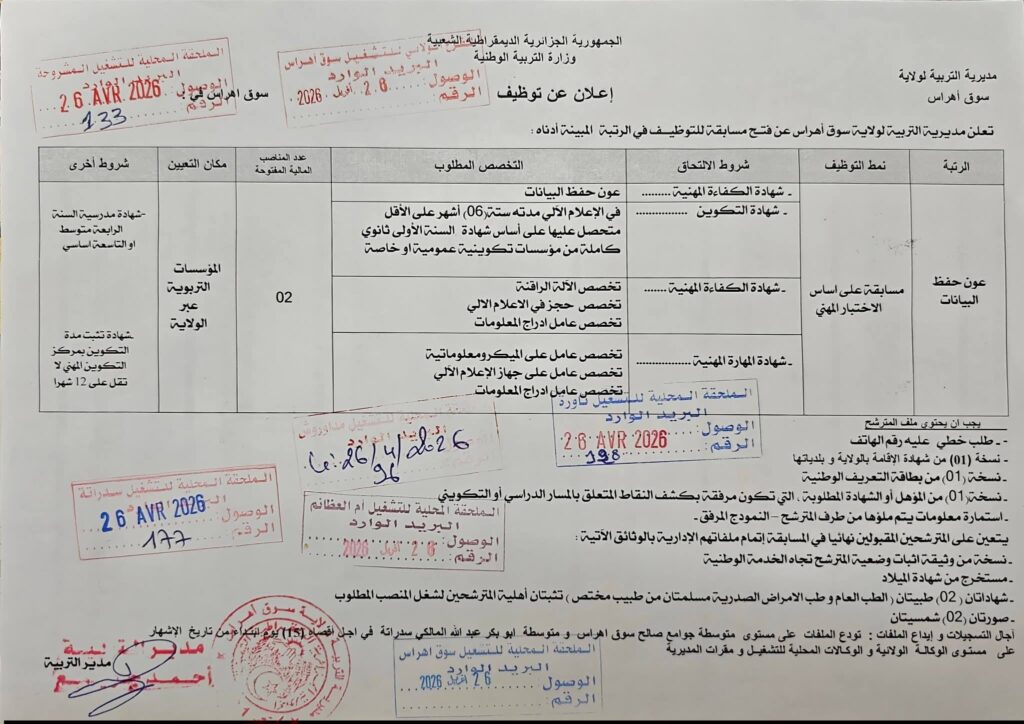 الجمهورية الجزائرية الديمقراطية الشعبية
وزارة التربية الوطنية
مديرية التربية لولاية
سوق أهراس
سوق اهراس في :
إعلان عن توظيف
الملحقة المحلية للتشغيل المشروحة
البريد الوارد
الوصول: 26 AVR 2026
الرقم: 133
الولائي للتشغيل سوق اهراس
البريد الوارد
الوصول: 26 أفريل 2026
الرقم:
تعلن مديرية التربية لولاية سوق أهراس عن فتح مسابقة للتوظيف في الرتبة المبينة أدناه :
الرتبة
نمط التوظيف
شروط الالتحاق
التخصص المطلوب
عدد المناصب المالية المفتوحة
مكان التعيين
شروط أخرى
عون حفظ البيانات
مسابقة على اساس الاختبار المهني
ـ شهادة الكفاءة المهنية .........
عون حفظ البيانات
ـ شهادة التكوين ................
في الإعلام الآلي مدته ستة (06) أشهر على الأقل
متحصل عليها على أساس شهادة السنة الأولى ثانوي
كاملة من مؤسسات تكوينية عمومية او خاصة
ـ شهادة الكفاءة المهنية .......
تخصص الآلة الراقنة
تخصص حجز في الاعلام الالي
تخصص عامل ادراج المعلومات
ـ شهادة المهارة المهنية ................
تخصص عامل على الميكرومعلوماتية
تخصص عامل على جهاز الإعلام الآلي
تخصص عامل ادراج المعلومات
02
المؤسسات
التربوية
عبر
الولاية
-شهادة مدرسية السنة
الرابعة متوسط
او التاسعة اساسي
-شهادة تثبت مدة
التكوين بمركز
التكوين المهني لا
تقل على 12 شهرا
الملحقة المحلية للتشغيل تاورة
البريد الوارد
الوصول: 26 AVR 2026
الرقم: 198
الملحقة المحلية للتشغيل مداوروش
البريد الوارد
Le: 26/4/2026
96
الملحقة المحلية للتشغيل سدراتة
26 AVR 2026
الوصول:
الرقم: 177
الملحقة المحلية للتشغيل ام العظائم
البريد الوارد
الوصول: 26 أفريل 2026
الرقم:
يجب ان يحتوي ملف المترشح
- ـ طلب خطي عليه رقم الهاتف
- نسخة (01) من شهادة الإقامة بالولاية و بلدياتها
- نسخة (01) من بطاقة التعريف الوطنية
ـ نسخة (01) من المؤهل أو الشهادة المطلوبة . التي تكون مرفقة بكشف النقاط المتعلق بالمسار الدراسي أو التكويني
- استمارة معلومات يتم ملؤها من طرف المترشح – النموذج المرفق-
يتعين على المترشحين المقبولين نهائيا في المسابقة إتمام ملفاتهم الإدارية بالوثائق الآتية :
- نسخة من وثيقة اثبات وضعية المترشح تجاه الخدمة الوطنية
ـ مستخرج من شهادة الميلاد
- شهاداتان (02) طبيتان (الطب العام و طب الامراض الصدرية مسلمتان من طبيب مختص ) تثبتان أهلية المترشحين لشغل المنصب المطلوب
- صورتان (02) شمسيتان
آجال التسجيلات و إيداع الملفات : تودع الملفات على مستوى متوسطة جوامع صالح سوق اهراس و متوسطة ابو بكر عبد الله المالكي سدراتة في اجل اقصاه (15) يوم ابتداء من تاريخ الإشهار
على مستوى الوكالة الولائية و الوكالات المحلية للتشغيل و مقرات المديرية
الملحقة المحلية للتشغيل سوق اهراس
البريد الوارد
الوصول: 26 أفريل 2026
الرقم:
مدير التربية